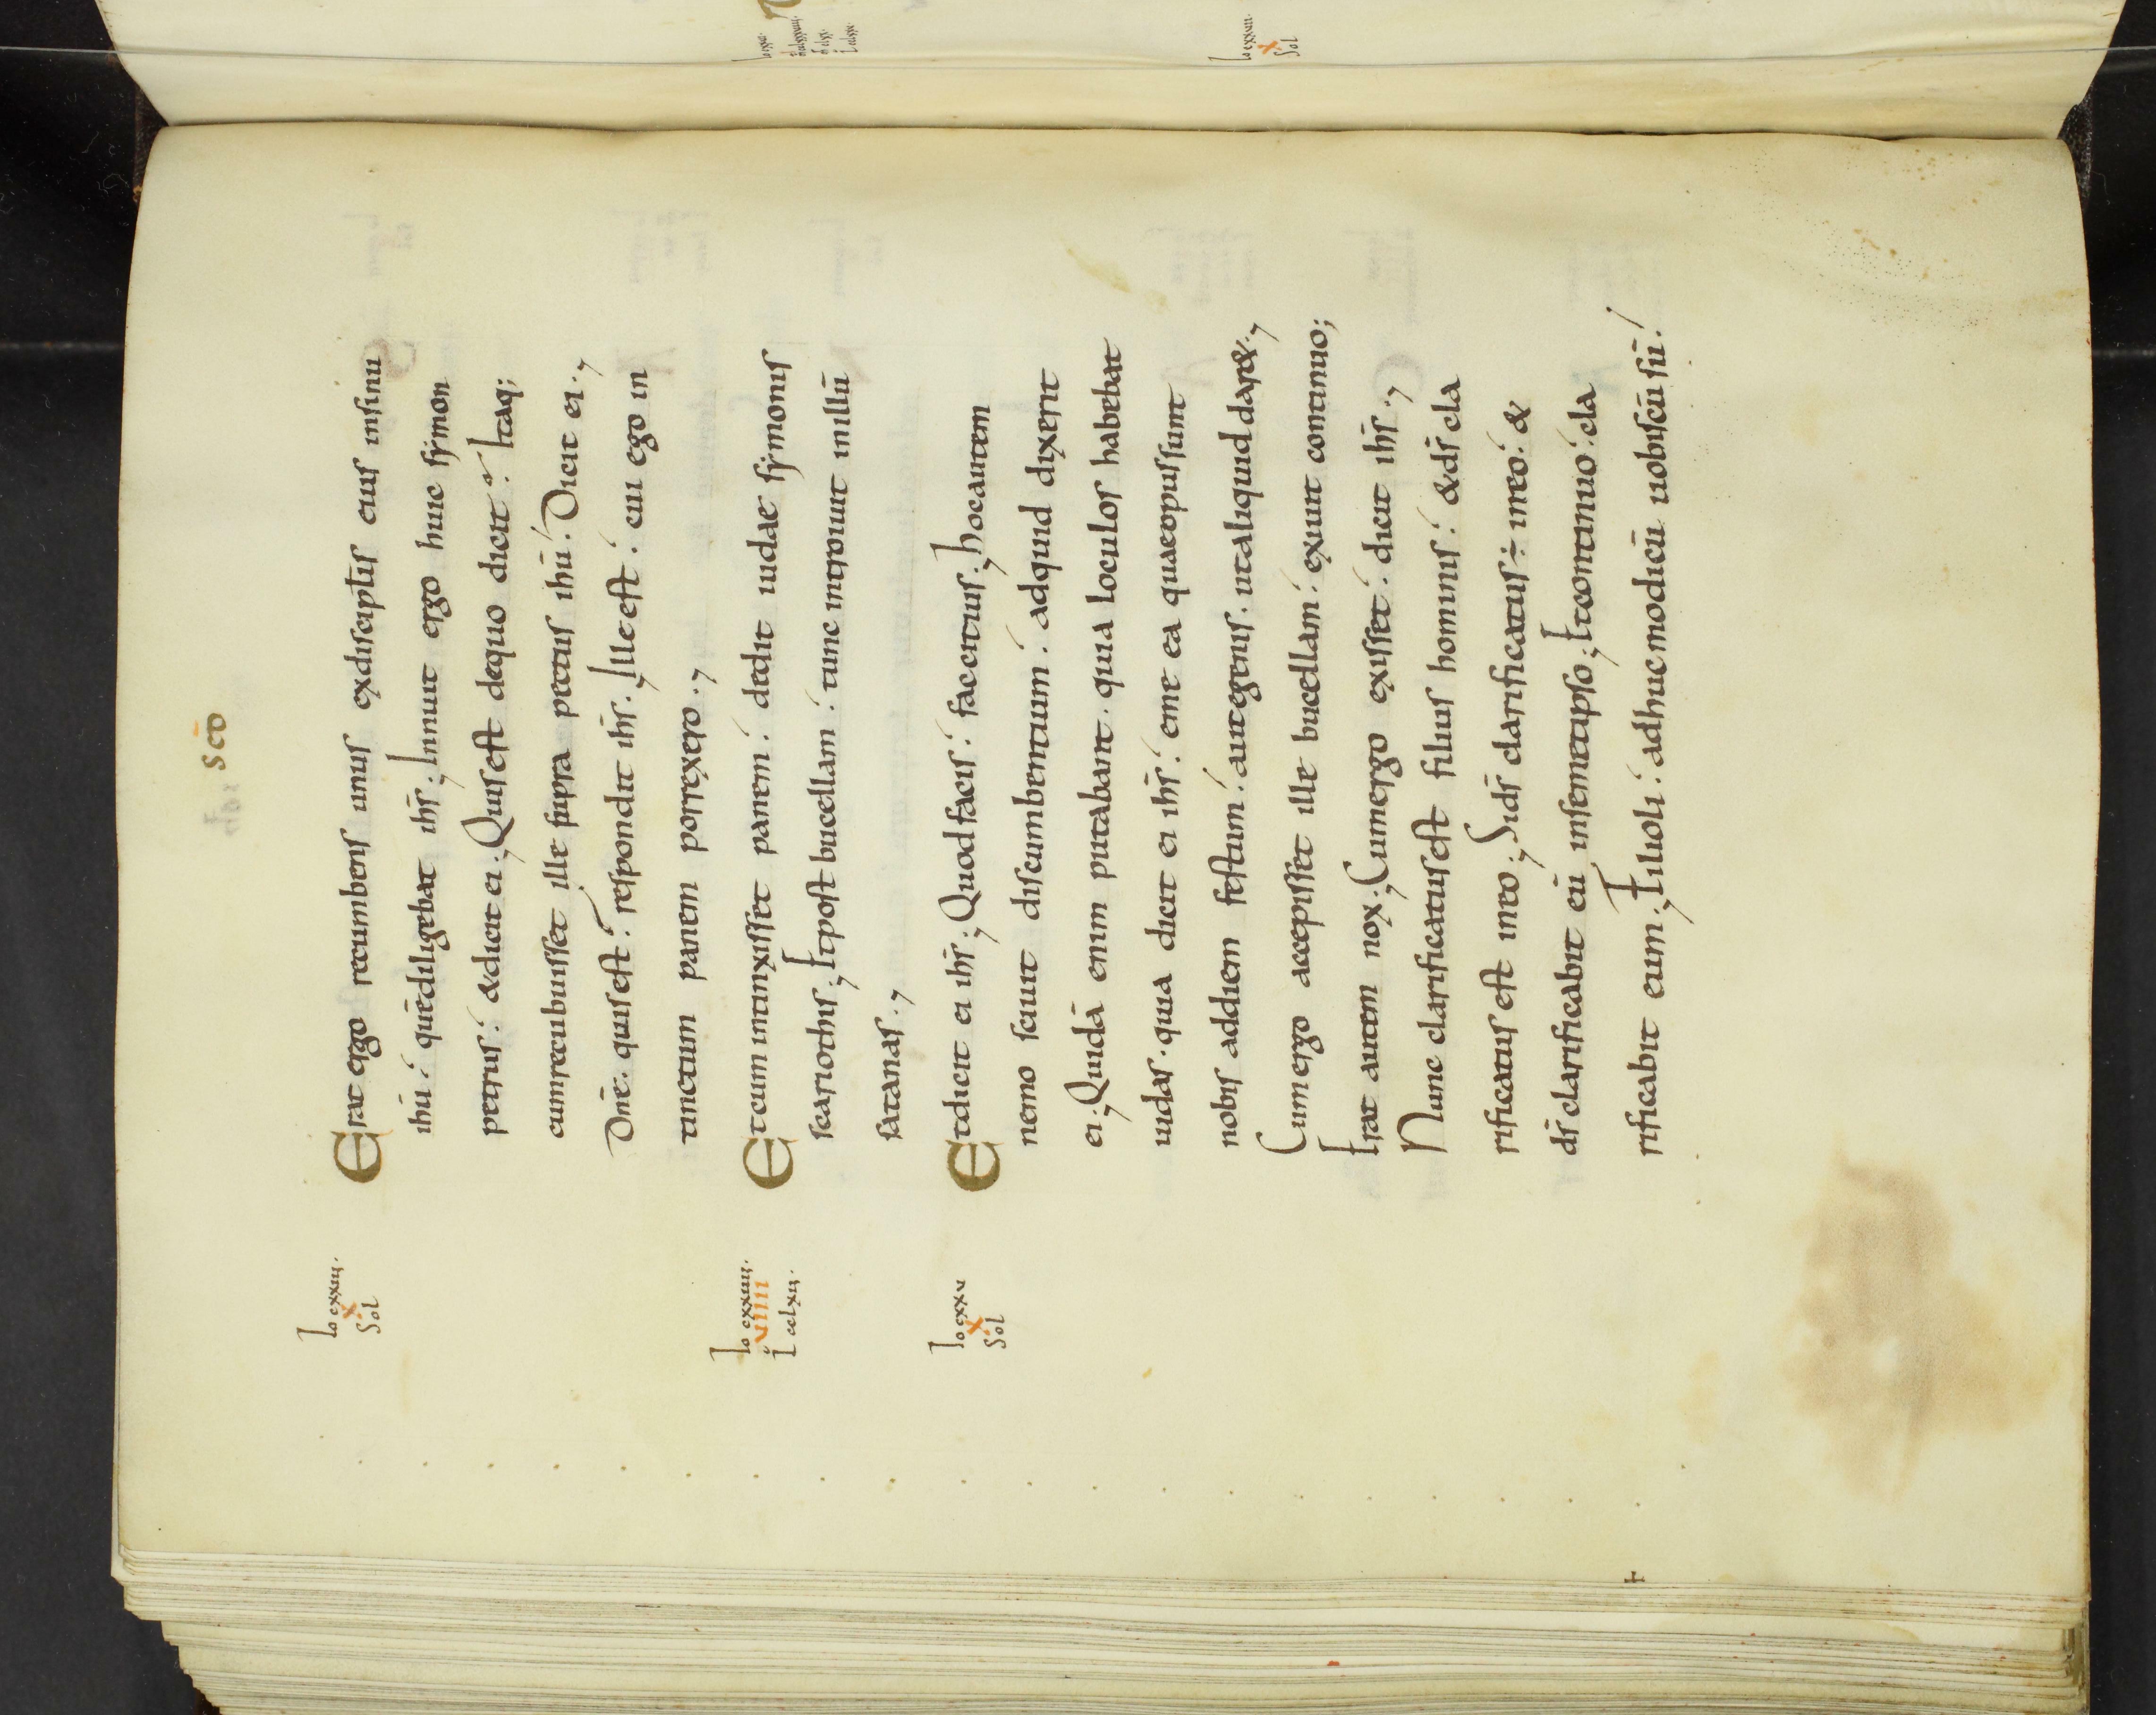 scd̄
Io cxxiii.
X
Sol
Erat ergo recumbens unus exdiscipl̄is eius insinu
ihū; quē diligebat ihs̄. Innuit ergo huic symon
petrus; &dicit ei. Quis est dequo dicit? Itaq;
cumrecubuisset ille supra pectus ihū; Dicit ei.
Dn̄e. quis est? respondit ihs̄. Ille est; cui ego in
tinctum panem porrexero.
Io cxxiiii.
VIIII
L cclxii.
Etcum intinxisset panem; dedit iudae symonis
scariothis. Etpost bucellam; tunc introiuit inillū
satanas.
Io cxxv
X
Sol
Etdicit ei ihs̄. Quodfacis; faccitius. hocautem
nemo sciuit discumbentium; adquid dixerit
ei. Quidā enim putabant. quia loculos habebat
iudas. quia dicit ei ihs̄; eme ea quaeopussunt
nobis addiem festum; autegenis. utaliquid dar&.
Cum ergo accepisset ille bucellam; exiuit continuo;
Erat autem nox. Cumergo exisset; dicit ihs̄.
Nunc clarificatusest filius hominis; &ds̄ cla
rificatus est ineo. Sids̄ clarificatus ÷ ineo; &
ds̄ clarificabit eū insemetipso. Etcontinuo; cla
rificabit eum. Filioli; adhucmodicū uobiscū sū;